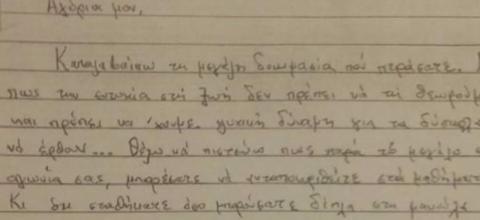 Αγόρια μου,
Καταλαβαίνω τη μεγάλη δοκιμασία που περάσατε.
πως την ευτυχία στή ζωή δεν πρέπει νά τη θεωρούμ
και πρέπει να 'χουμε ψυχική δύναμη για τα δύσκολα
νά έρθουν... Θέλω νά πιστεύω πως παρά τό μεγάλο
αγωνία σας, μπορέσατε νά ανταποκριθείτε στά μαθήματ
Κι ότι σταθήκατε όσο μπορούσατε δίπλα στη μανούλα